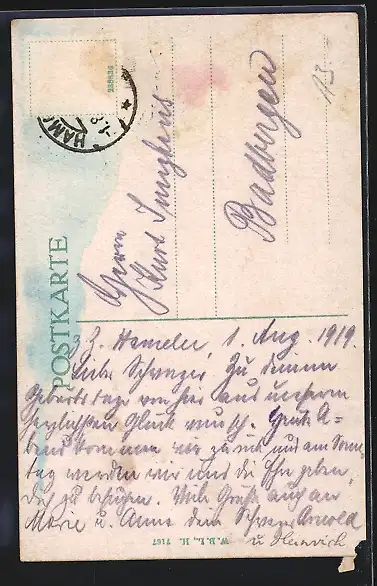 POSTKARTE
238836
HAM
113
Herrn
Kurt Junghans
Badbergen
z. Z. Hameln, 1. Aug. 1919.
Lieber Schwager. Zu deinem
Geburtstage von hier aus unseren
herzlichsten Glückwunsch. Heute A-
bend kommen wir zurück und am Sonn-
tag werden wir uns die Ehre geben,
dich zu besuchen. Viele Grüße auch an
Marie u. Anna dein Schwager Arnold
u Heinrich
W. B. L., H. 7167